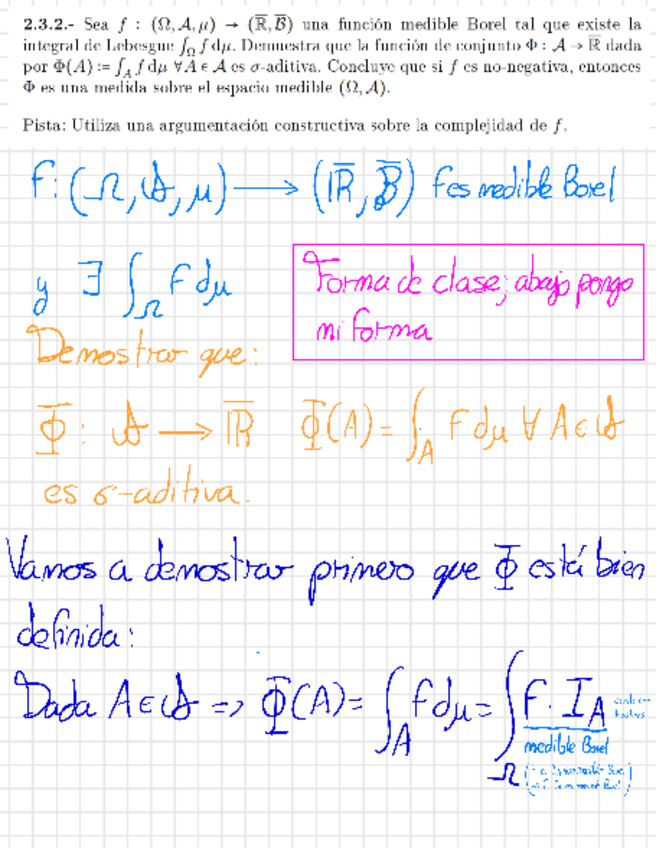 2.3.2.- Sea f : (Ω, 𝒜, μ) → (ℝ̅, ℬ̅) una función medible Borel tal que existe la
integral de Lebesgue ∫_Ω f dμ. Demuestra que la función de conjunto Φ : 𝒜 → ℝ̅ dada
por Φ(A) := ∫_A f dμ ∀A ∈ 𝒜 es σ-aditiva. Concluye que si f es no-negativa, entonces
Φ es una medida sobre el espacio medible (Ω, 𝒜).
Pista: Utiliza una argumentación constructiva sobre la complejidad de f.
f: (Ω, 𝒜, μ) ⟶ (ℝ̅, ℬ̅) f es medible Borel
y ∃ ∫_Ω f dμ
Forma de clase; abajo pongo
mi forma
Demostrar que:
Φ : 𝒜 ⟶ ℝ̅ Φ(A) = ∫_A f dμ ∀ A ∈ 𝒜
es σ-aditiva.
Vamos a demostrar primero que Φ está bien
definida:
Dada A ∈ 𝒜 => Φ(A) = ∫_A f dμ = ∫_Ω f · I_A
medible Borel